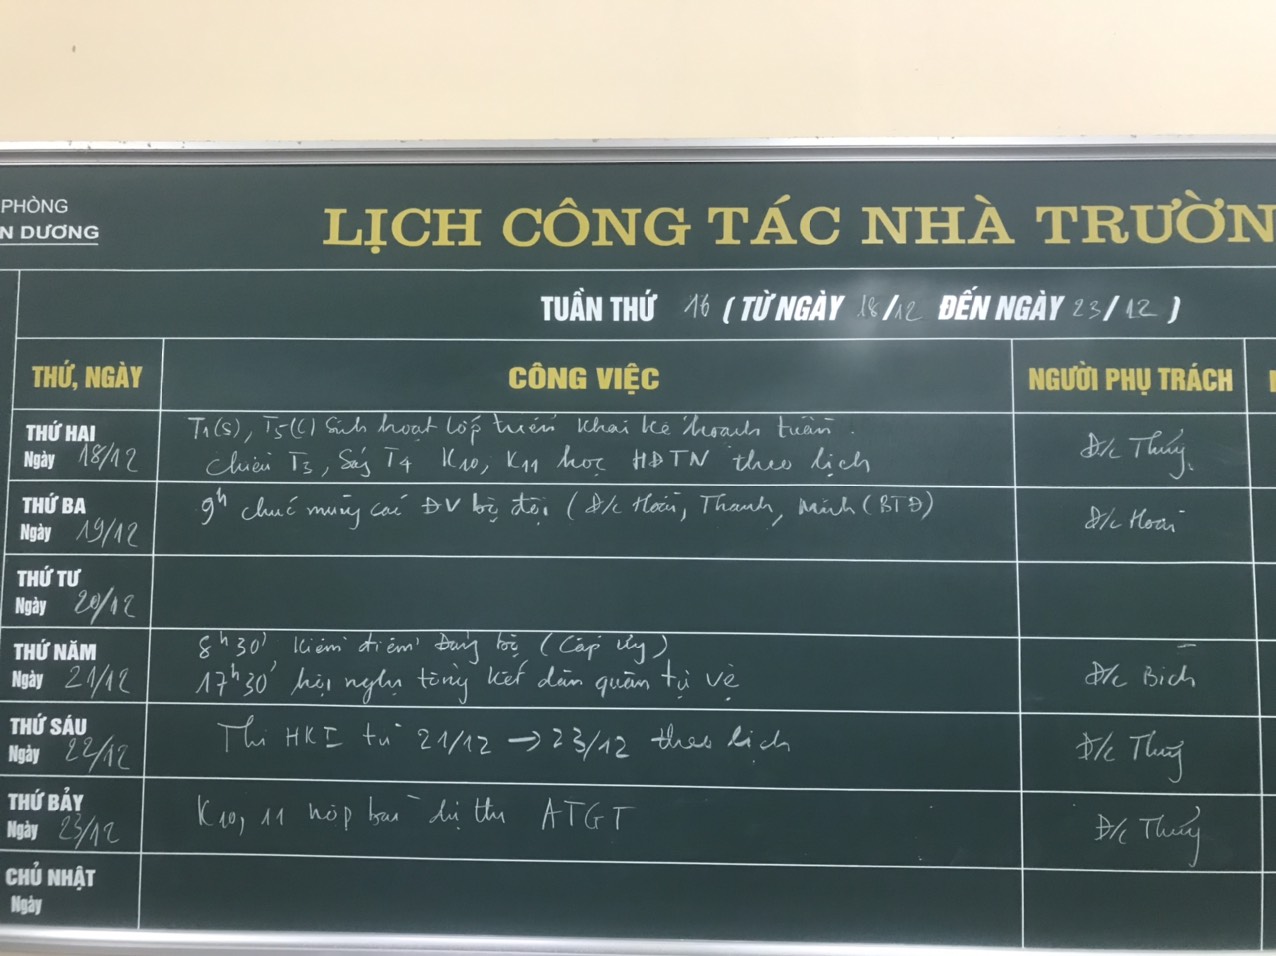 PHÒNG
N DƯƠNG
LỊCH CÔNG TÁC NHÀ TRƯỜN
TUẦN THỨ 16 (TỪ NGÀY 18/12 ĐẾN NGÀY 23/12)
THỨ, NGÀY CÔNG VIỆC NGƯỜI PHỤ TRÁCH
THỨ HAI
Ngày 18/12
T1(S), T5(C) Sinh hoạt lớp triển khai kế hoạch tuần.
Chiều T3, Sáng T4 K10, K11 học HĐTN theo lịch
Đ/c Thúy
THỨ BA
Ngày 19/12
9h chúc mừng các ĐV bộ đội (Đ/c Hoài, Thanh, Minh (BTĐ)
Đ/c Hoài
THỨ TƯ
Ngày 20/12
THỨ NĂM
Ngày 21/12
8h30' Kiểm điểm Đảng bộ (Cấp ủy)
17h30' hội nghị tổng kết dân quân tự vệ
Đ/c Bích
THỨ SÁU
Ngày 22/12
Thi HKI từ 21/12 → 23/12 theo lịch
Đ/c Thúy
THỨ BẢY
Ngày 23/12
K10, 11 nộp bài dự thi ATGT
Đ/c Thúy
CHỦ NHẬT
Ngày